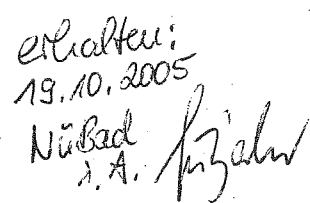 erhalten:
19.10.2005
NüBad
i. A.